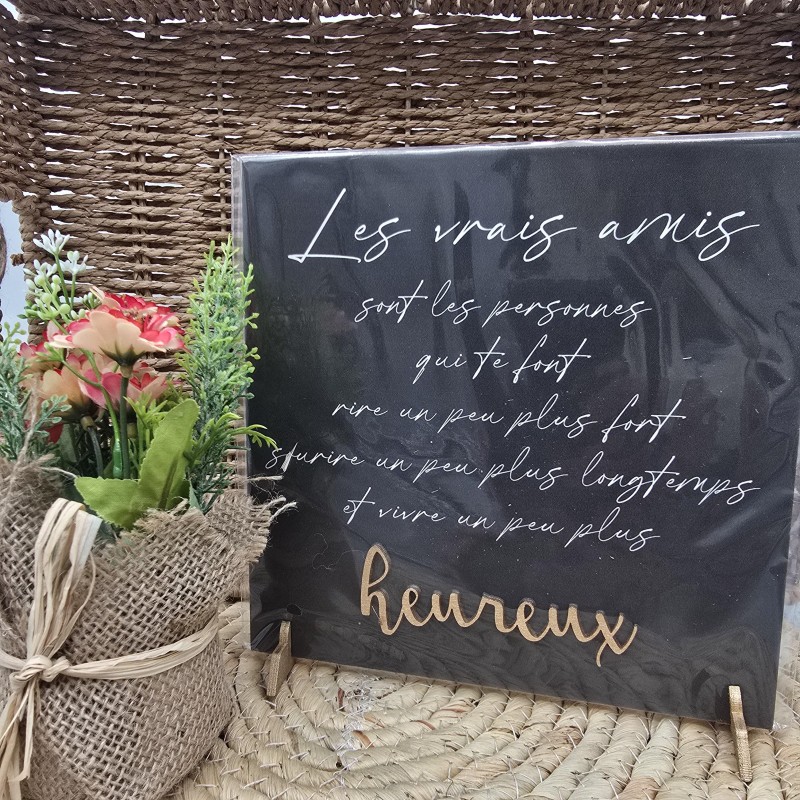 Les vrais amis
sont les personnes
qui te font
rire un peu plus fort
sourire un peu plus longtemps
et vivre un peu plus
heureux